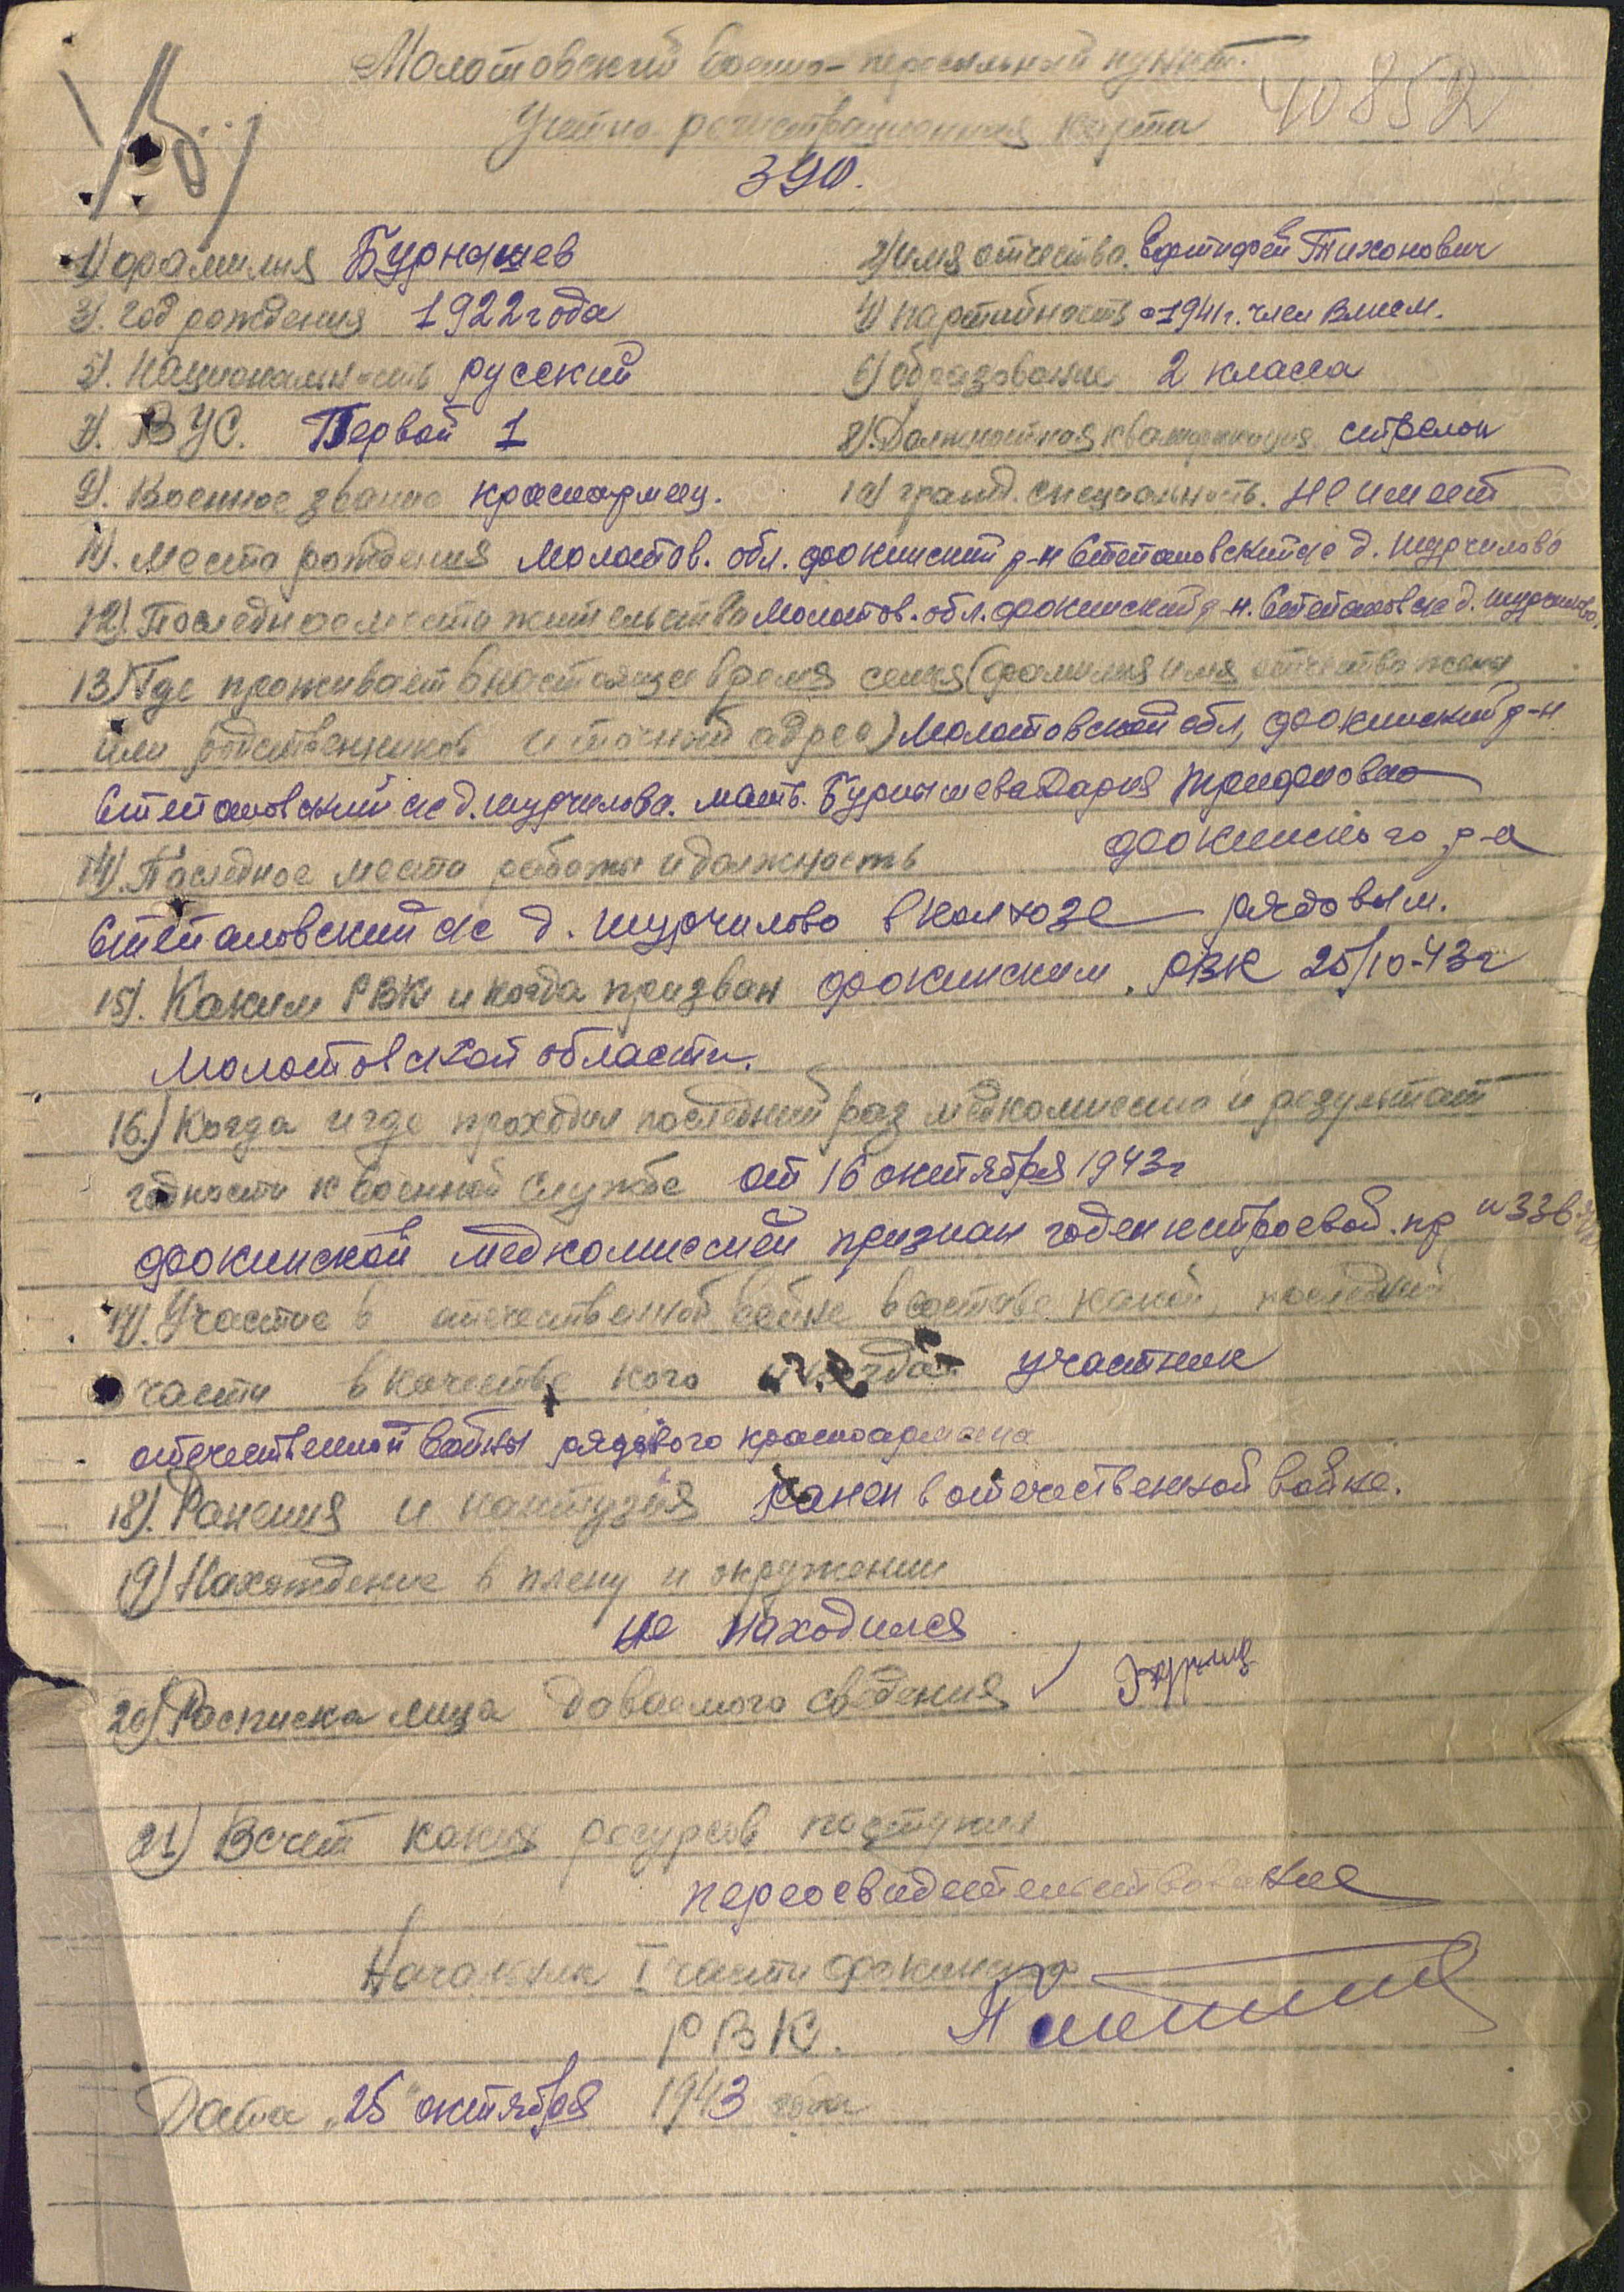 Молотовский военно-пересыльный пункт.
40852
Учетно регистрационная карта
390.
1) фамилия Бурнышев 2) имя отчество Тихонович
3). год рождения 1922 года 4) партийность с 1941 г. член влксм.
5). Национальность русский 6) образование 2 класса
7). ВУС. Первой 1 8). Должностная квалификация стрелок
9). Военное звание красноармеец. 10) гражд. специальность. не имеет
11). Место рождения Молотов. обл. фокинский р-н Степановский с/с д. шурчилово
12). Последнее место жительства Молотов. обл. фокинский р-н. Степановск с/с д. шурчилово,
13) Где проживает в настоящее время семья (фамилия имя отчество жены
или родственников и точный адрес) Молотовской обл, фокинский р-н
Степановский с/с д. шурчилова. мать. Бурнышева Дария Трифоновна
14). Последнее место работы и должность фокинского р-а
Степановский с/с д. шурчилово в колхозе рядовым.
15). Каким РВК и когда призван фокинским. РВК 25/10-43г
Молотовской области.
16.) Когда и где проходил последний раз медкомиссию и результат
годности к военной службе от 16 октября 1943г
фокинской медкомиссией признан годен к строевой. пр 336
17). Участие в отечественной войне в составе какой, последней
части в качестве кого и когда участник
отечественной войны рядового красноармейца
18). Ранения и контузия ранен в отечественной войне.
19) Нахождение в плену и окружении
не находился
20) Расписка лица даваемого сведения
21) В счет каких ресурсов поступил
переосвидетельствование
Начальник I части фокинского
РВК.
Дата "25" октября 1943 года